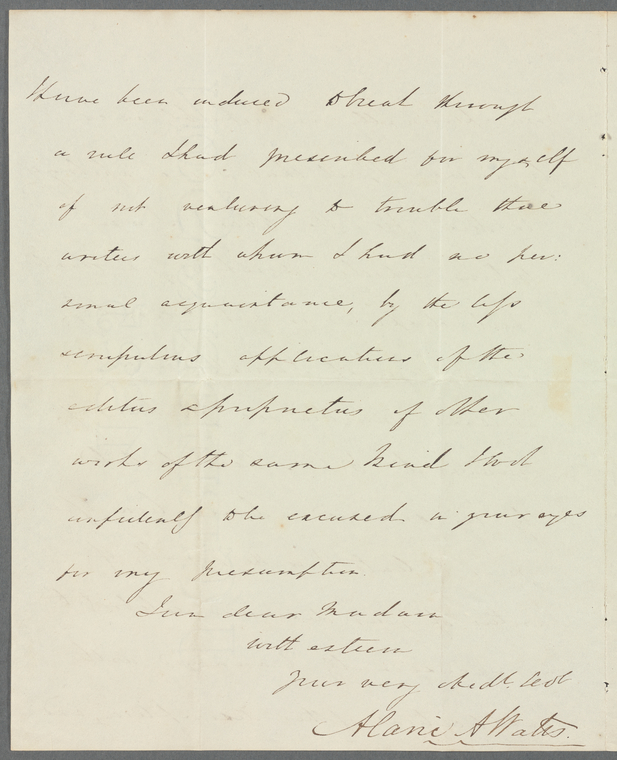 I have been induced to break through
a rule I had prescribed for myself
of not venturing to trouble those
writers with whom I had no per:
sonal acquaintance, by the less
scrupulous applications of the
editors & proprietors of other
works of the same kind I look
confidently to be excused in your eyes
for my presumption.
I am dear Madam
with esteem
Your very Obedt. Sevt
Alaric A Watts.